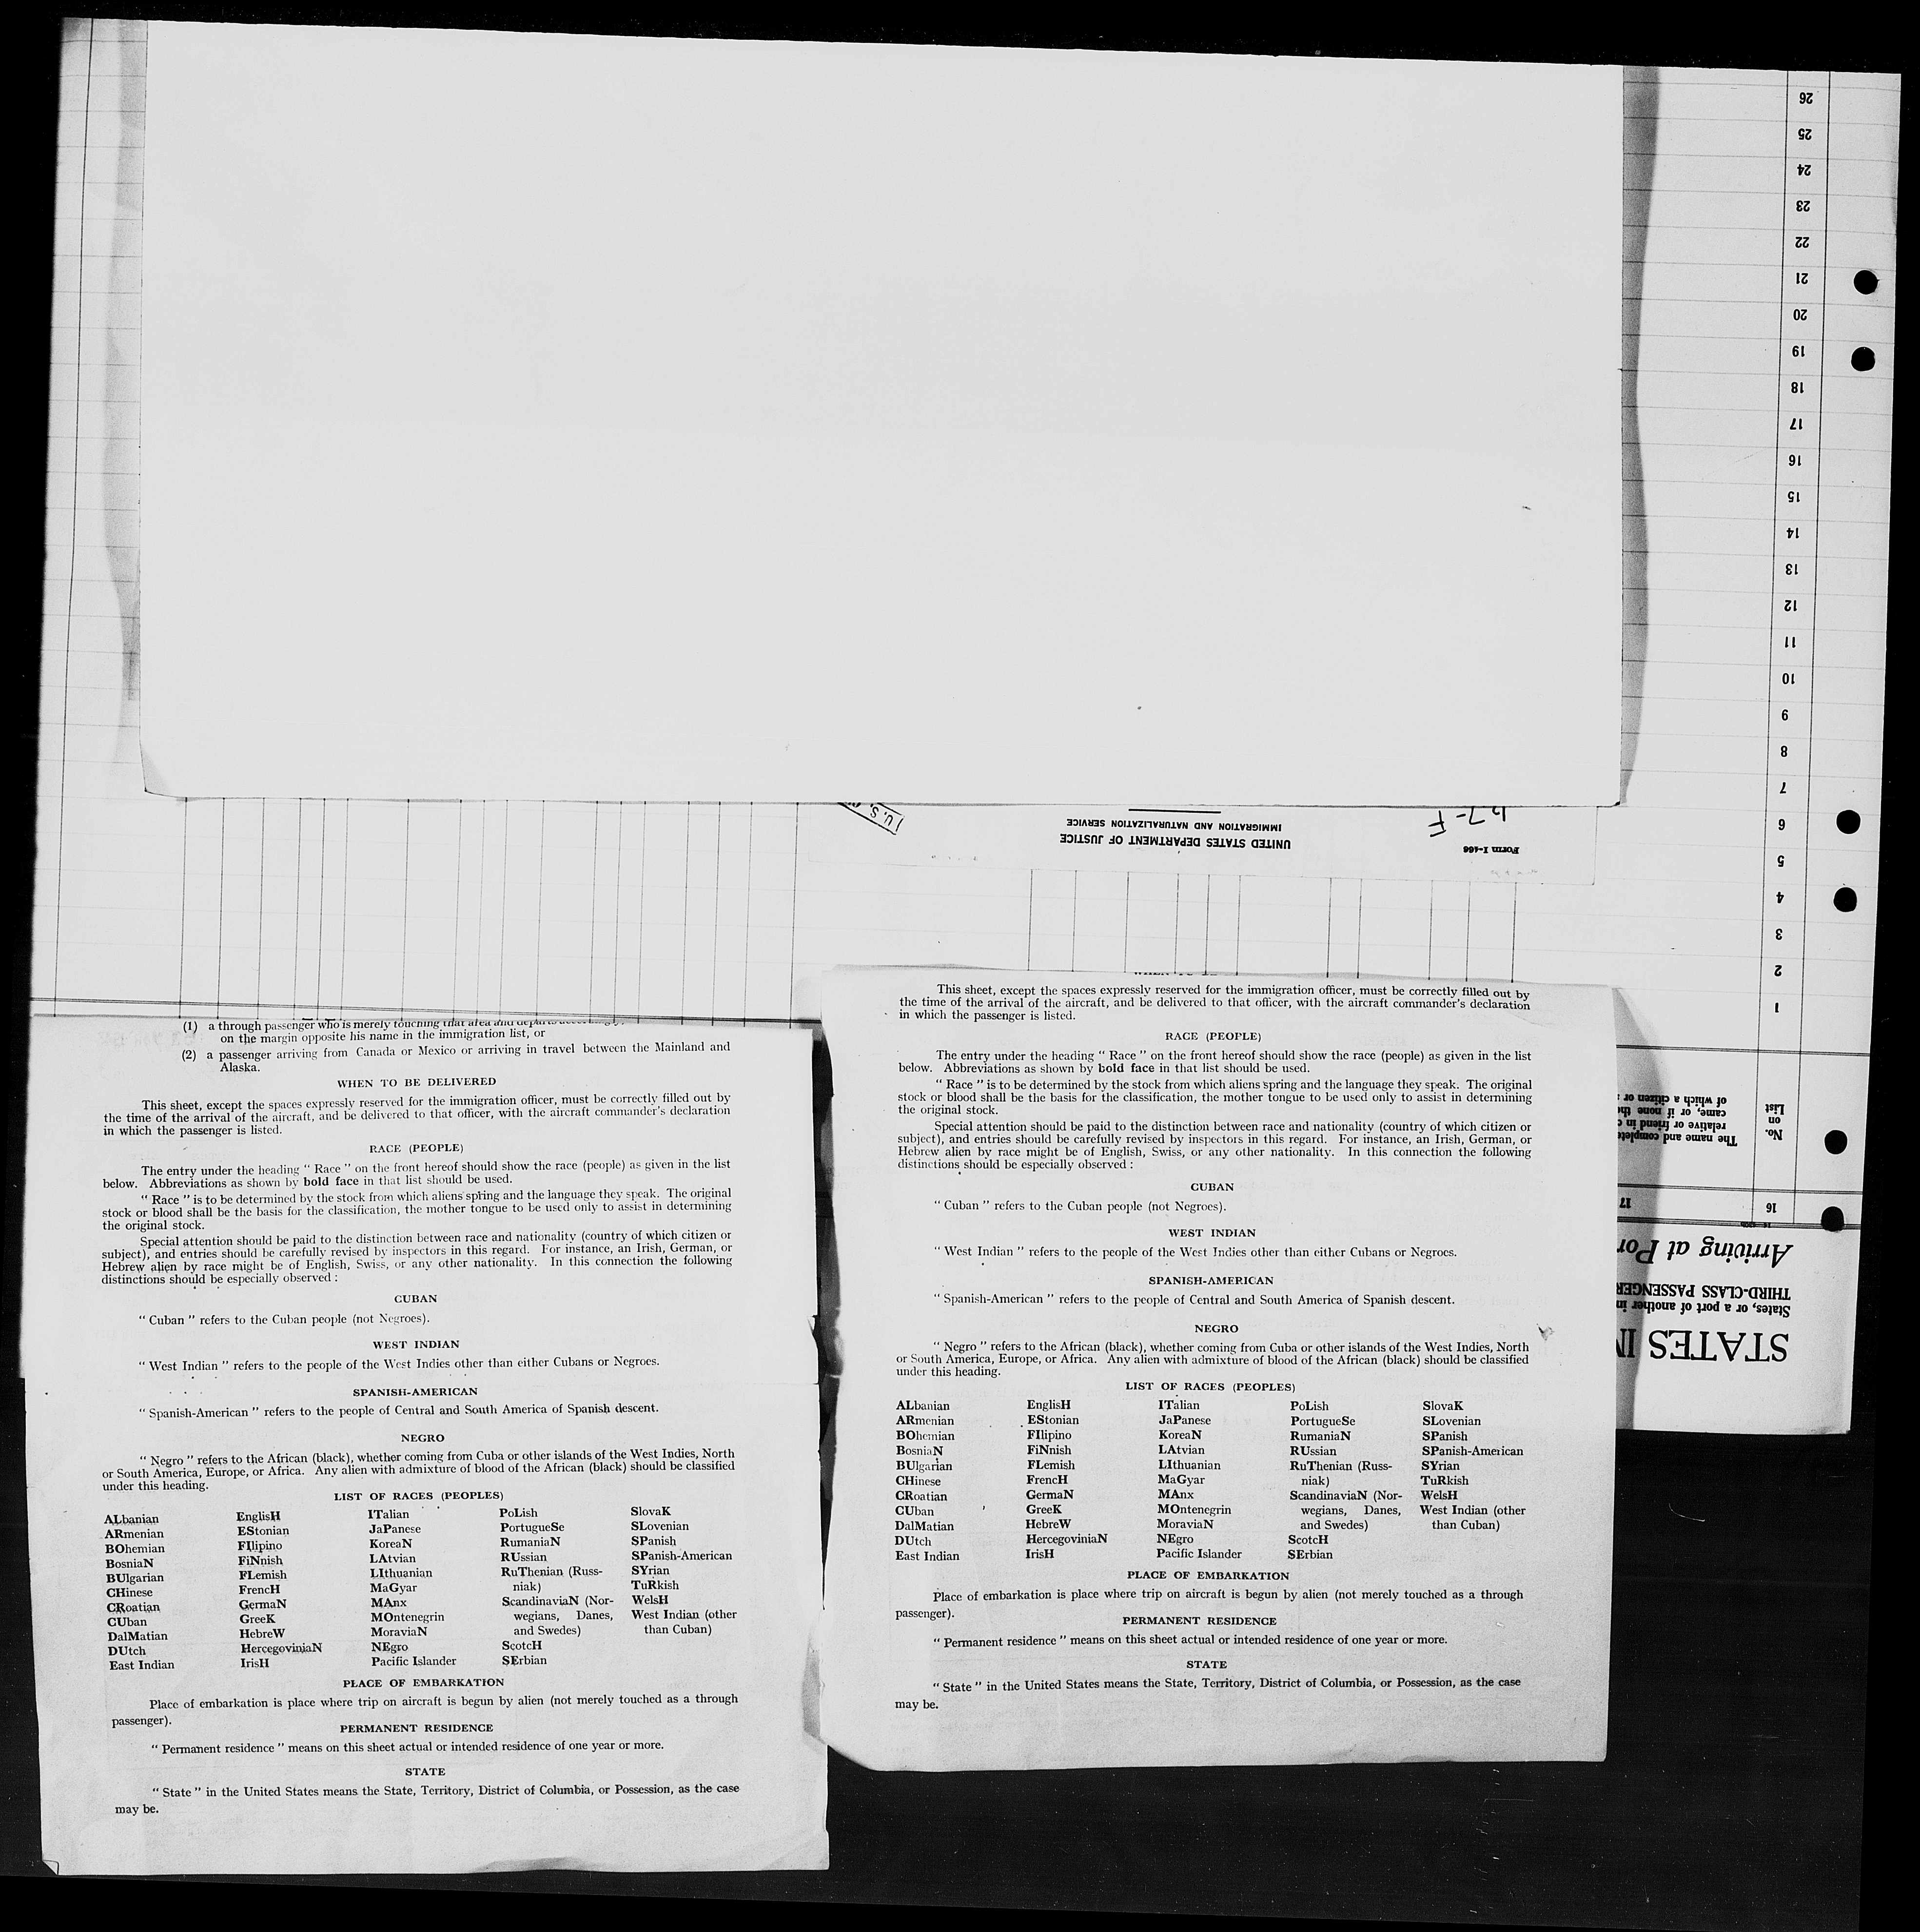 26
25
24
23
22
21
20
19
18
17
16
15
14
13
12
11
10
9
8
7
6
5
4
3
2
1
No. on List
The name and complete
relative or friend in c
came, or if none the
of which a citizen or
16
17
Arriving at Por
THIRD-CLASS PASSENGER
States, or a port of another in
STATES IN
Form I-466
UNITED STATES DEPARTMENT OF JUSTICE
IMMIGRATION AND NATURALIZATION SERVICE
U. S.
(1) a through passenger who is merely touching that area and
on the margin opposite his name in the immigration list, or
(2) a passenger arriving from Canada or Mexico or arriving in travel between the Mainland and
Alaska.
WHEN TO BE DELIVERED
This sheet, except the spaces expressly reserved for the immigration officer, must be correctly filled out by
the time of the arrival of the aircraft, and be delivered to that officer, with the aircraft commander's declaration
in which the passenger is listed.
RACE (PEOPLE)
The entry under the heading "Race" on the front hereof should show the race (people) as given in the list
below. Abbreviations as shown by bold face in that list should be used.
"Race" is to be determined by the stock from which aliens spring and the language they speak. The original
stock or blood shall be the basis for the classification, the mother tongue to be used only to assist in determining
the original stock.
Special attention should be paid to the distinction between race and nationality (country of which citizen or
subject), and entries should be carefully revised by inspectors in this regard. For instance, an Irish, German, or
Hebrew alien by race might be of English, Swiss, or any other nationality. In this connection the following
distinctions should be especially observed:
CUBAN
"Cuban" refers to the Cuban people (not Negroes).
WEST INDIAN
"West Indian" refers to the people of the West Indies other than either Cubans or Negroes.
SPANISH-AMERICAN
"Spanish-American" refers to the people of Central and South America of Spanish descent.
NEGRO
"Negro" refers to the African (black), whether coming from Cuba or other islands of the West Indies, North
or South America, Europe, or Africa. Any alien with admixture of blood of the African (black) should be classified
under this heading.
LIST OF RACES (PEOPLES)
ALbanian EnglisH ITalian PoLish SlovaK
ARmenian EStonian JaPanese PortugueSe SLovenian
BOhemian FIlipino KoreaN RumaniaN SPanish
BosniaN FiNnish LAtvian RUssian SPanish-American
BUlgarian FLemish LIthuanian RuThenian (Russ- SYrian
CHinese FrencH MaGyar niak) TuRkish
CRoatian GermaN MAnx ScandinaviaN (Nor- WelsH
CUban GreeK MOntenegrin wegians, Danes, West Indian (other
DalMatian HebreW MoraviaN and Swedes) than Cuban)
DUtch HercegoviniaN NEgro ScotcH
East Indian IrisH Pacific Islander SErbian
PLACE OF EMBARKATION
Place of embarkation is place where trip on aircraft is begun by alien (not merely touched as a through
passenger).
PERMANENT RESIDENCE
"Permanent residence" means on this sheet actual or intended residence of one year or more.
STATE
"State" in the United States means the State, Territory, District of Columbia, or Possession, as the case
may be.
This sheet, except the spaces expressly reserved for the immigration officer, must be correctly filled out by
the time of the arrival of the aircraft, and be delivered to that officer, with the aircraft commander's declaration
in which the passenger is listed.
RACE (PEOPLE)
The entry under the heading "Race" on the front hereof should show the race (people) as given in the list
below. Abbreviations as shown by bold face in that list should be used.
"Race" is to be determined by the stock from which aliens spring and the language they speak. The original
stock or blood shall be the basis for the classification, the mother tongue to be used only to assist in determining
the original stock.
Special attention should be paid to the distinction between race and nationality (country of which citizen or
subject), and entries should be carefully revised by inspectors in this regard. For instance, an Irish, German, or
Hebrew alien by race might be of English, Swiss, or any other nationality. In this connection the following
distinctions should be especially observed:
CUBAN
"Cuban" refers to the Cuban people (not Negroes).
WEST INDIAN
"West Indian" refers to the people of the West Indies other than either Cubans or Negroes.
SPANISH-AMERICAN
"Spanish-American" refers to the people of Central and South America of Spanish descent.
NEGRO
"Negro" refers to the African (black), whether coming from Cuba or other islands of the West Indies, North
or South America, Europe, or Africa. Any alien with admixture of blood of the African (black) should be classified
under this heading.
LIST OF RACES (PEOPLES)
ALbanian EnglisH ITalian PoLish SlovaK
ARmenian EStonian JaPanese PortugueSe SLovenian
BOhemian FIlipino KoreaN RumaniaN SPanish
BosniaN FiNnish LAtvian RUssian SPanish-American
BUlgarian FLemish LIthuanian RuThenian (Russ- SYrian
CHinese FrencH MaGyar niak) TuRkish
CRoatian GermaN MAnx ScandinaviaN (Nor- WelsH
CUban GreeK MOntenegrin wegians, Danes, West Indian (other
DalMatian HebreW MoraviaN and Swedes) than Cuban)
DUtch HercegoviniaN NEgro ScotcH
East Indian IrisH Pacific Islander SErbian
PLACE OF EMBARKATION
Place of embarkation is place where trip on aircraft is begun by alien (not merely touched as a through
passenger).
PERMANENT RESIDENCE
"Permanent residence" means on this sheet actual or intended residence of one year or more.
STATE
"State" in the United States means the State, Territory, District of Columbia, or Possession, as the case
may be.